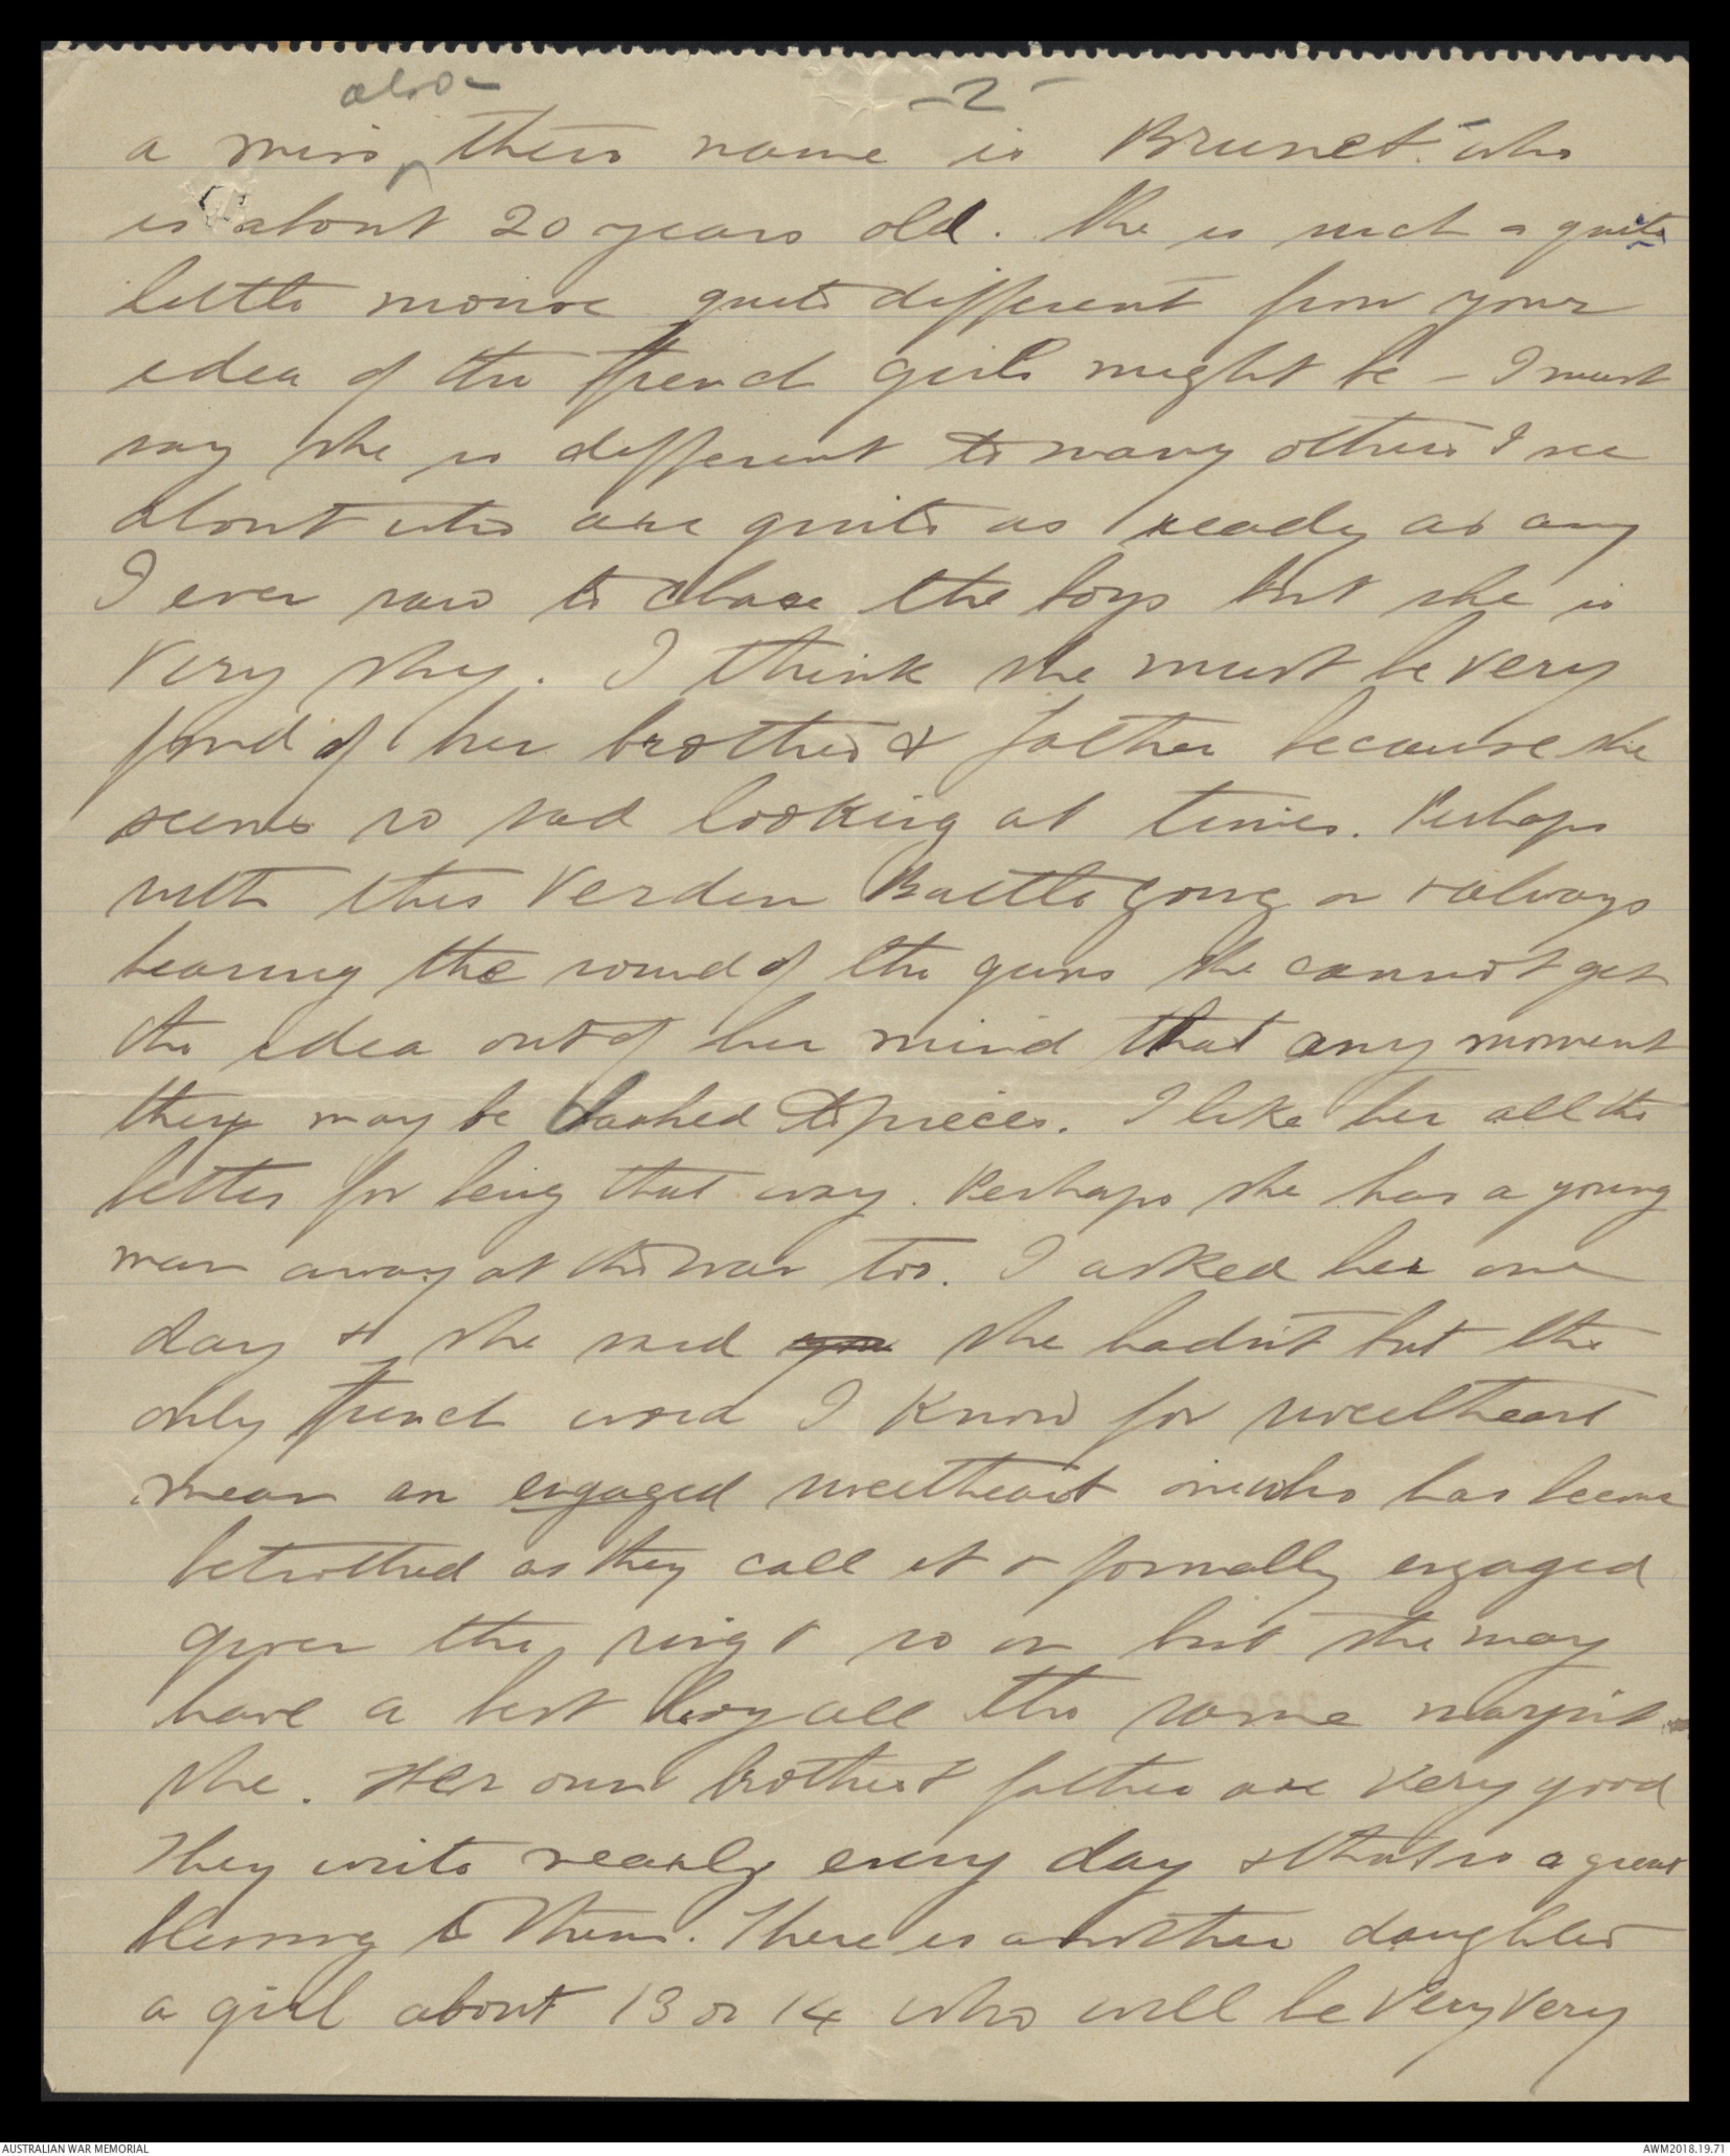 also
-2-
a miss, their name is Brunet who
is about 20 years old. She is such a quite
little mouse quite different from your
idea of the French girls might be - I must
say she is different to many others I see
about who are quite as ready as any
I ever saw to chase the boys but she is
very shy. I think she must be very
fond of her brother & father because she
seems so sad looking at times. Perhaps
with this Verdun Battle going on & always
hearing the sound of the guns she cannot get
the idea out of her mind that any moment
they may be dashed to pieces. I like her all the
better for being that way. Perhaps she has a young
man away at the war too. I asked her one
day & she said she hadn't but the
only French word I know for sweetheart
mean an engaged sweetheart one who has become
betrothed as they call it & formally engaged
given the ring & so on but she may
have a best boy all the same mayn't
she. Her own brother & father are very good
They write nearly every day & that is a great
blessing to them. There is another daughter
a girl about 13 or 14 who will be very very
AUSTRALIAN WAR MEMORIAL
AWM2018.19.71